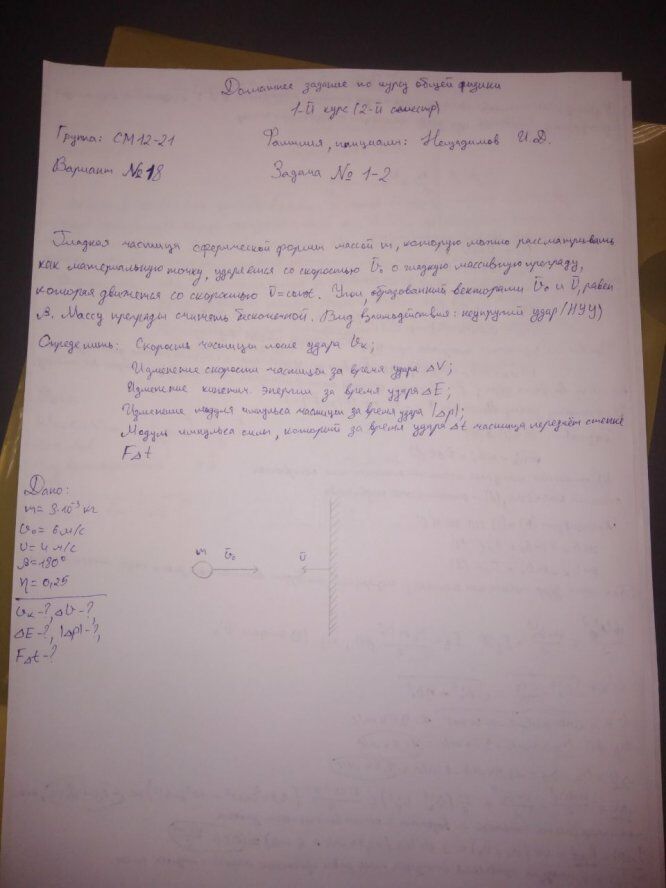 Домашнее задание по курсу общей физики
1-й курс (2-й семестр)
Группа: СМ12-21
Фамилия, инициалы: И.Д.
Вариант №18
Задача № 1-2
Гладкая частица сферической формы массой m, которую можно рассматривать
как материальную точку, ударяется со скоростью v̄₀ о гладкую массивную преграду,
которая движется со скоростью ῡ=const. Угол, образованный векторами v̄₀ и ῡ, равен
β. Массу преграды считать бесконечной. Вид взаимодействия: неупругий удар (НУУ)
Определить: Скорость частицы после удара Vк;
Изменение скорости частицы за время удара ΔV;
Изменение кинетич. энергии за время удара ΔE;
Изменение модуля импульса частицы за время удара |Δp|;
Модуль импульса силы, который за время удара Δt частица передаёт стенке
FΔt
Дано:
m= 3·10⁻³ кг
v₀= 6 м/с
U= 4 м/с
β=180°
η= 0,25
Vк-?, ΔV-?,
ΔE-?, |Δp|-?,
FΔt-?
m v̄₀ ῡ